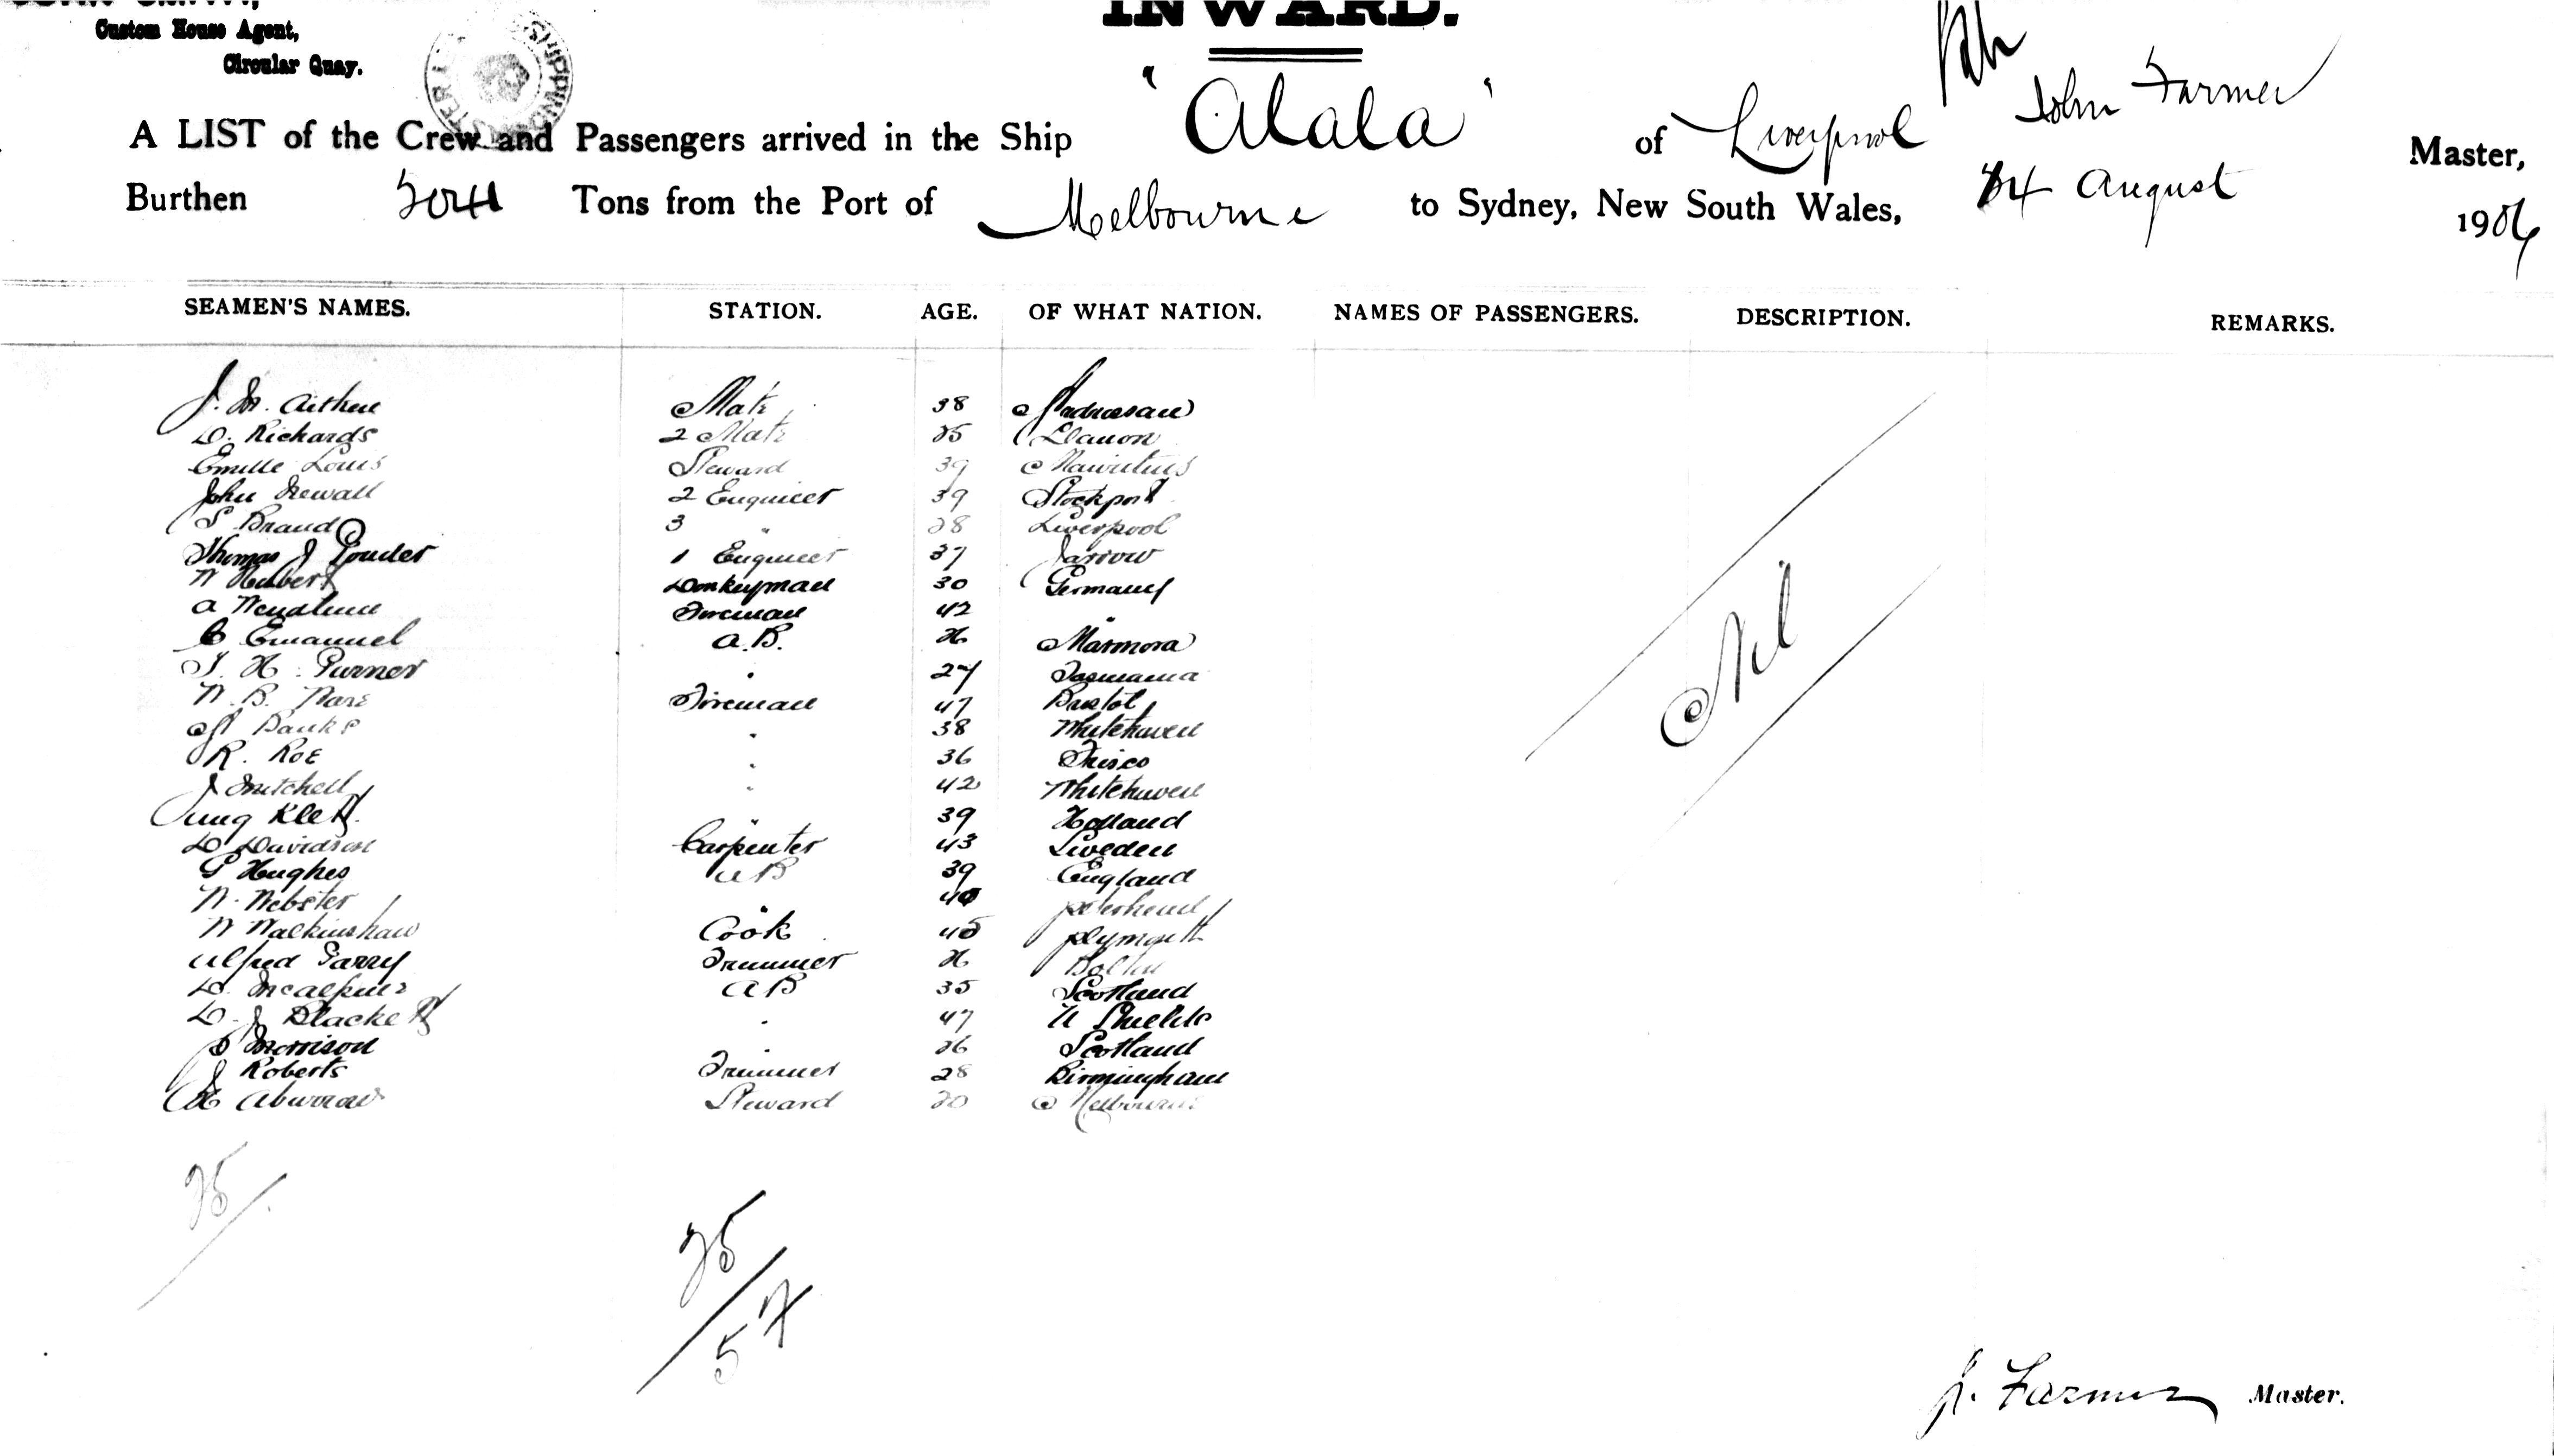 INWARD.
Custom House Agent,
Circular Quay.
A LIST of the Crew and Passengers arrived in the Ship "Alala" of Liverpool John Farmer Master,
Burthen Tons from the Port of Melbourne to Sydney, New South Wales, 24 August 1906
SEAMEN'S NAMES. STATION. AGE. OF WHAT NATION. NAMES OF PASSENGERS. DESCRIPTION. REMARKS.
J. M. Arthur Mate 38
D. Richards 2 Mate 25 Llanon
Emille Louis Steward 39 Mauritius
John Newall 2 Engineer 39 Stockport
S Brand 3 " 28 Liverpool
Thomas J 1 Engineer 37 Jarrow
W Hubert Donkeyman 30 Germany
A Fireman 42 "
C Emanuel A.B. 26 Marmora
T. H. Turner " 27 Tasmania
W. B. Ware Fireman 47 Bristol
H Banks " 38 Whitehaven
R. Roe " 36 Frisco
J Mitchell " 42 Whitehaven
Klett. " 39 Holland
D Davidson Carpenter 43 Sweden
P Hughes AB 39 England
W. Webster " 40 peterhead
W Walkinshaw Cook 45 plymouth
Alfred Parry Trimmer 26 Bolton
D. McAlpine AB 35 Scotland
D. J Blackett " 47 N Shields
Morrison " 26 Scotland
J Roberts Trimmer 28 Birmingham
Steward 20 Melbourne
Nil
25
25
57
J. Farmer Master.